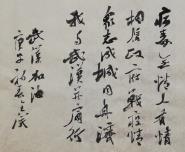 病毒无情人有情
相信政府战疫情
众志成城同舟济
我与武汉并肩行
武汉加油
庚子新春